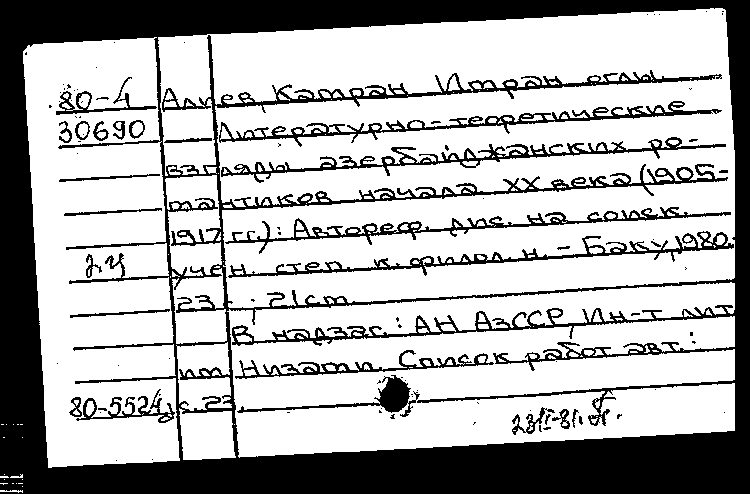 80-4 Алиев, Катран Итран оглы.
30690 Литературно-теоретические
взгляды азербайджанских ро-
мантиков начала XX века (1905-
1917 гг.): Автореф. дис. на соиск.
учен. степ. к. филол. н. - Баку, 1980.
23 с.; 21 см.
В надзаг.: АН АзССР, Ин-т лит.
им. Низами. Список работ авт.:
80-5524 с. 23.